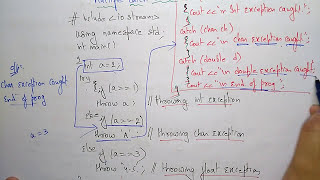 # Include <iostream>
using namespace std;
int main()
{ int a=2;
try
{ if (a==1)
throw a; // Throwing int exception
else if (a==2)
throw 'A'; // Throwing char exception
else if (a==3)
throw 4.5; // Throwing float exception
{ cout << " Int exception caught";
}
catch (char ch)
{ cout << "char exception caught";
}
catch (double d)
{ cout << "double exception caught";
}
cout << " End of prog ";
}
o/p:
Char exception caught
End of prog
a=3